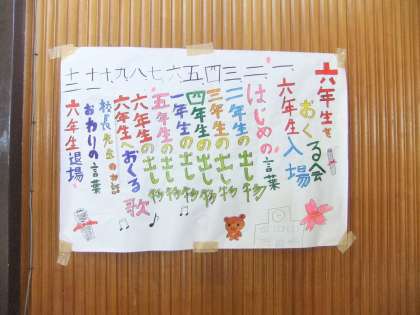 六年生を
おくる会
一、六年生入場
二、はじめの言葉
三、二年生の出し物
四、三年生の出し物
五、四年生の出し物
六、一年生の出し物
七、五年生の出し物
八、六年生の出し物
九、六年生へおくる歌
十、校長先生のお話
十一、おわりの言葉
十二、六年生退場